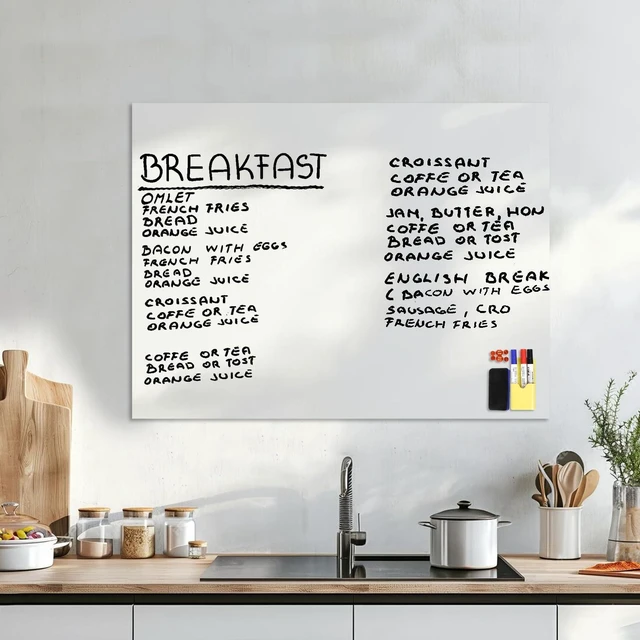 BREAKFAST
OMLET
FRENCH FRIES
BREAD
ORANGE JUICE
BACON WITH EGGS
FRENCH FRIES
BREAD
ORANGE JUICE
CROISSANT
COFFE OR TEA
ORANGE JUICE
COFFE OR TEA
BREAD OR TOST
ORANGE JUICE
CROISSANT
COFFE OR TEA
ORANGE JUICE
JAM, BUTTER, HON
COFFE OR TEA
BREAD OR TOST
ORANGE JUICE
ENGLISH BREAK
( BACON WITH EGGS
SAUSAGE, CRO
FRENCH FRIES